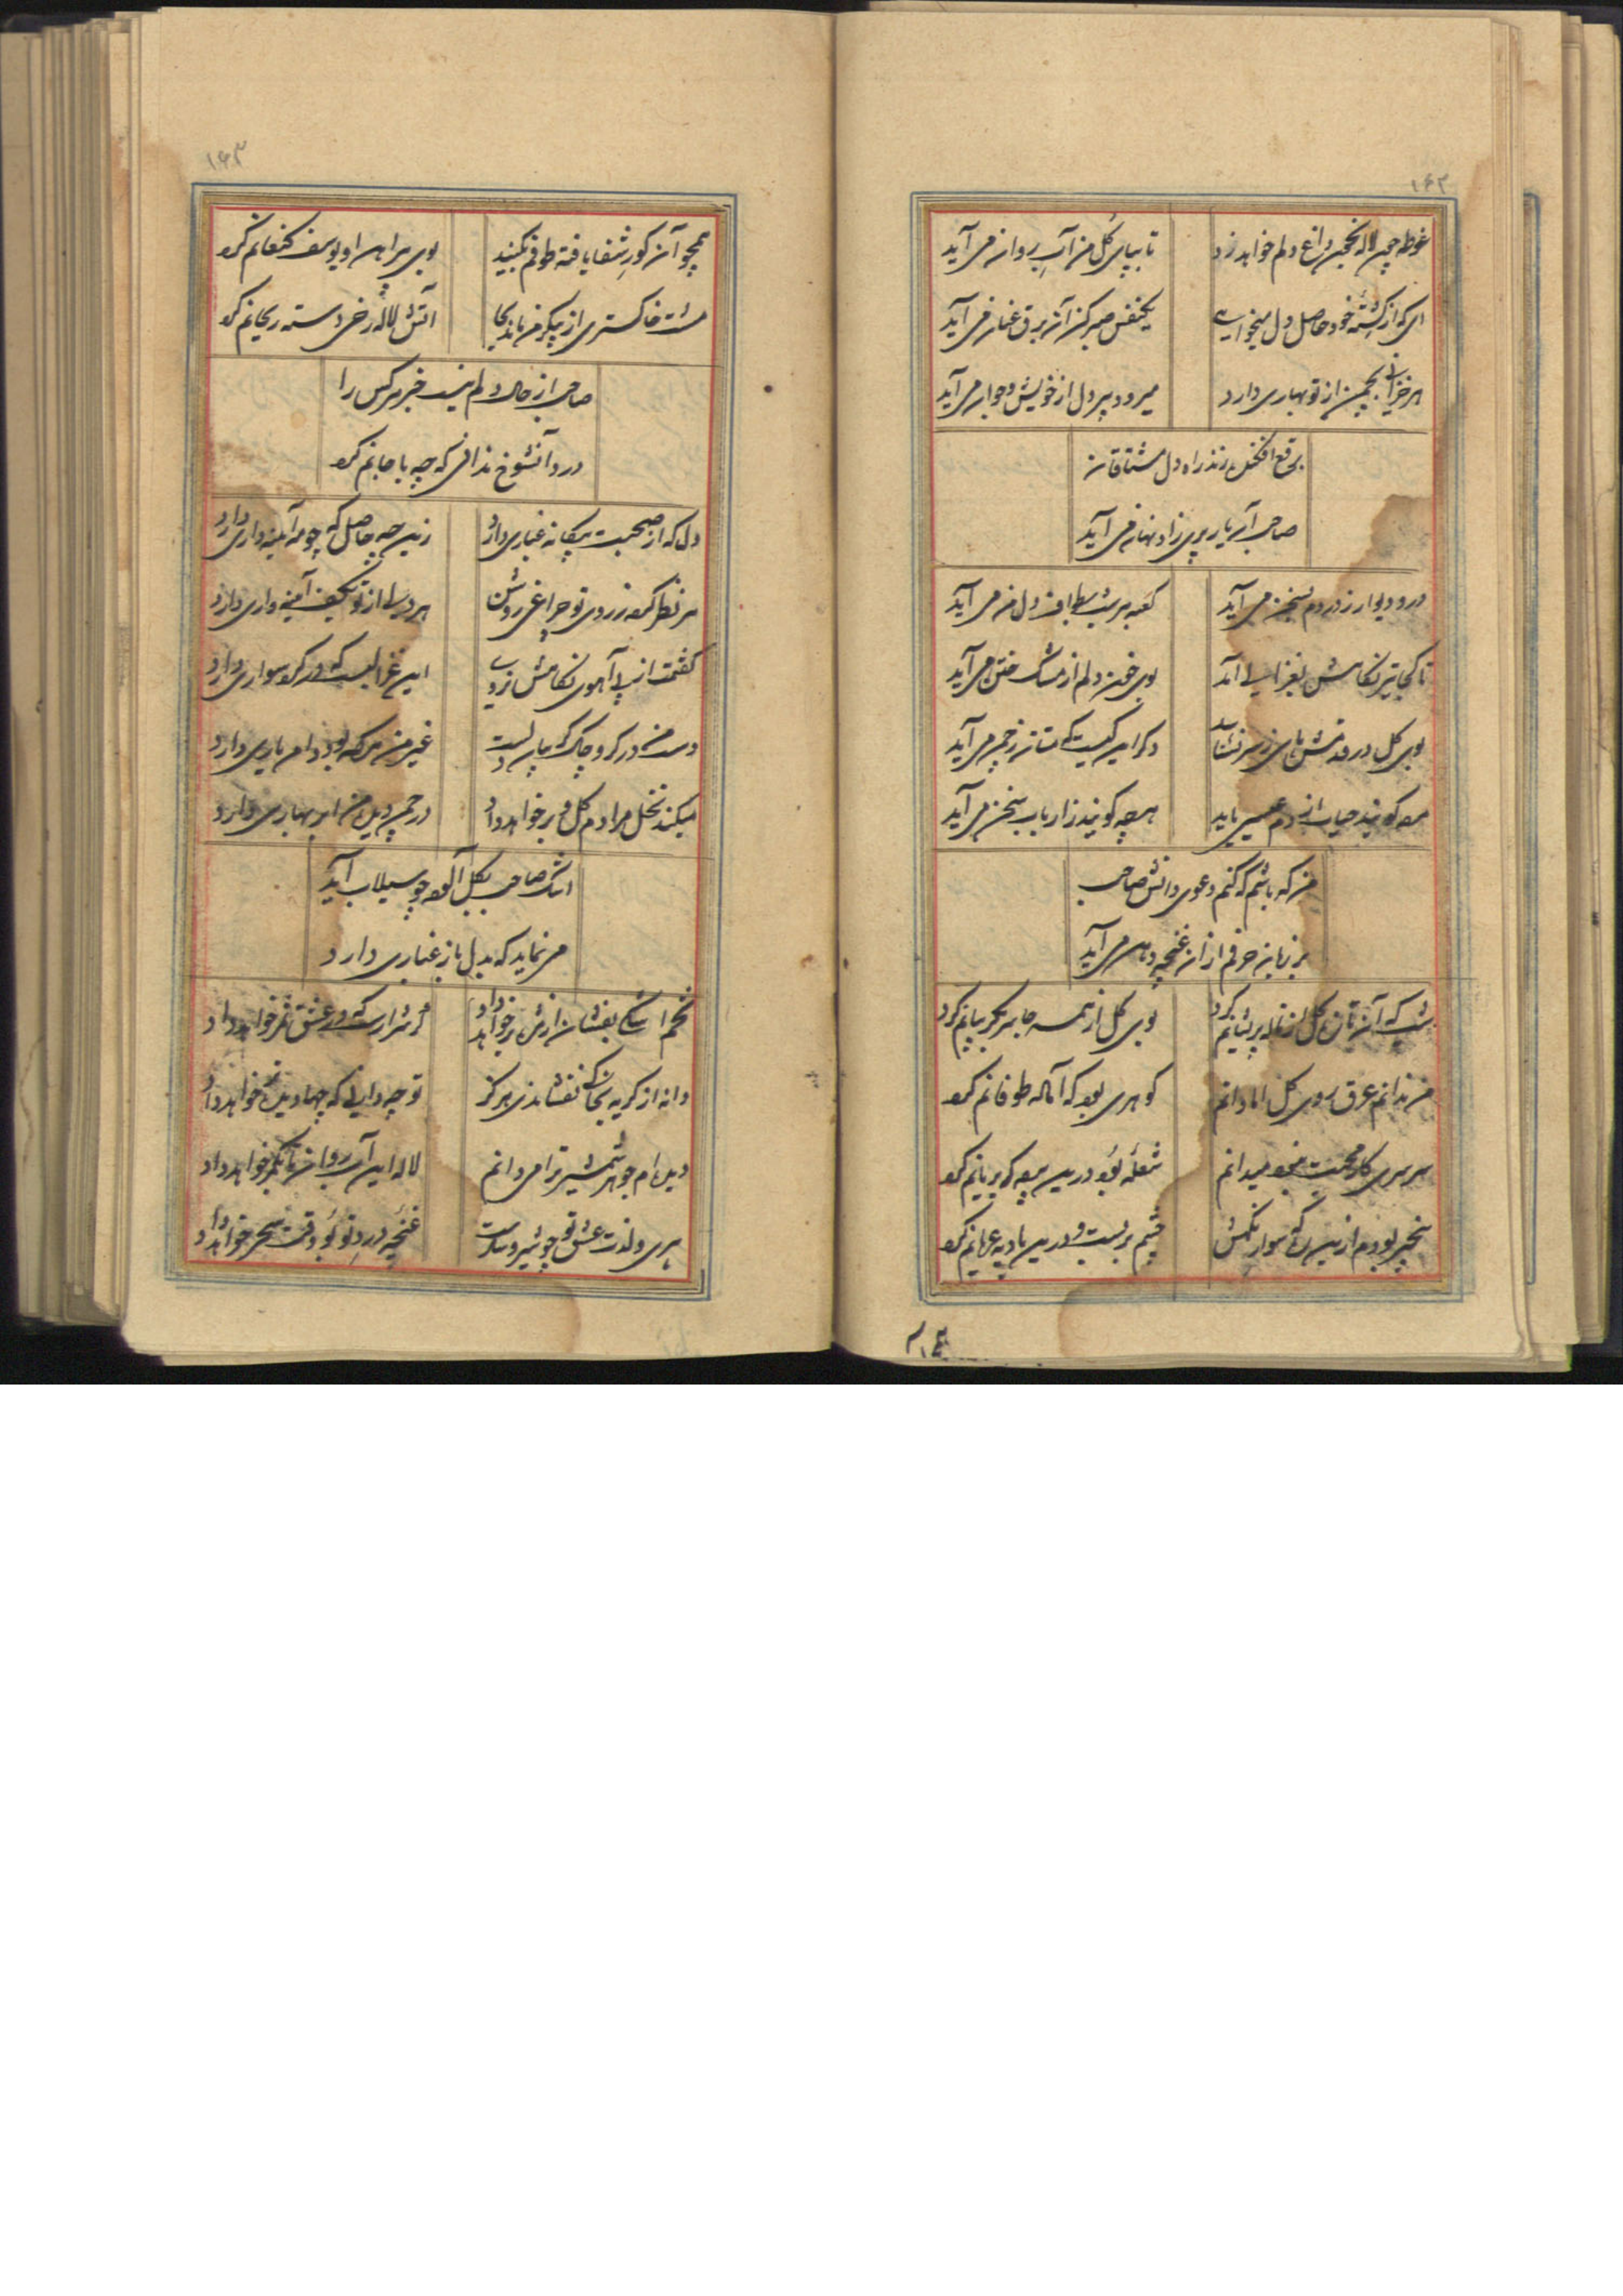 ۱۶۲
غوطه چون لاله بخون داغ دلم خواهد زد
تا بپای گل من آب روان می آید
ای که از کشته خود حاصل دل میخواهی
یکنفس صبر کن آن برق عنان می آید
هر خزانی بچمن از تو بهاری دارد
میرود پیر دل از خویش و جوان می آید
برقع افکنده زند راه دل مشتاقان
صاحب آن یار پری زاد نهان می آید
در و دیوار ز دردم بسخن می آید
کعبه هر شب بطواف دل من می آید
تا کجا تیر نگاهش بغزالی آمد
بوی خون دلم از مشک ختن می آید
بوی گل در قدمش پای ز سر نشناسد
دگر این کیست که مستانه ز چمن می آید
مرده گویند حیات از دم عیسی یابد
هرچه گویند ز ارباب سخن می آید
من که باشم که کنم دعوی دانش صاحب
بر زبان حرفم ازان غنچه دهن می آید
شب که آن تازه گل از ناله پریشانم کرد
بوی گل از همه جا سر بگریبانم کرد
من ندانم عرق روی گل اما دانم
گوهری بود که آماله طوفانم کرد
سرسری کار محبت نبود میدانم
شعله بود درین پرده که بریانم کرد
بیخبر بودم ازین ره که سوار نگهش
چشم بر بست و درین بادیه عریانم کرد
۱۶۳
همچو آن کور شفا یافته طوفم بکنید
بوی پیراهن او یوسف کنعانم کرد
مشت خاکستری از پیکر من ماند بجا
آتش لاله رخی دسته ریحانم کرد
صاحب از حال دلم نیست خبر هر کس را
درد آنشوخ ندانی که چه با جانم کرد
دل که از صحبت بیگانه غباری دارد
زین چه حاصل که چو مه آینه داری دارد
هر نظر کرده ز روی تو چراغی روشن
هر دل از تو بکف آینه داری دارد
گفتمت از پی آهوی نگاهش نروی
این غزالیست که در گرد سواری دارد
دست من در گرو چاک گریبانیست
غیر من هر که بود دامن یاری دارد
میکند نخل مرادم گل و بر خواهد داد
در چمن دیده من ابر بهاری دارد
اشک صاحب بگل آلوده چو سیلاب آید
می نماید که بدل باز غباری دارد
تخم اشکی بفشان زانکه بر خواهد داد
هر شراریست که در عشق ثمر خواهد داد
دانه از گریه بخاکی نفشاندی هرگز
تو چه دانی که چها دیده تر خواهد داد
دیده ام جوهر شمشیر ترا می دانم
لاله این آب روان تا بکمر خواهد داد
پیری و لذت عشق تو چو شیر و شکرست
غنچه درد تو بو وقت سحر خواهد داد